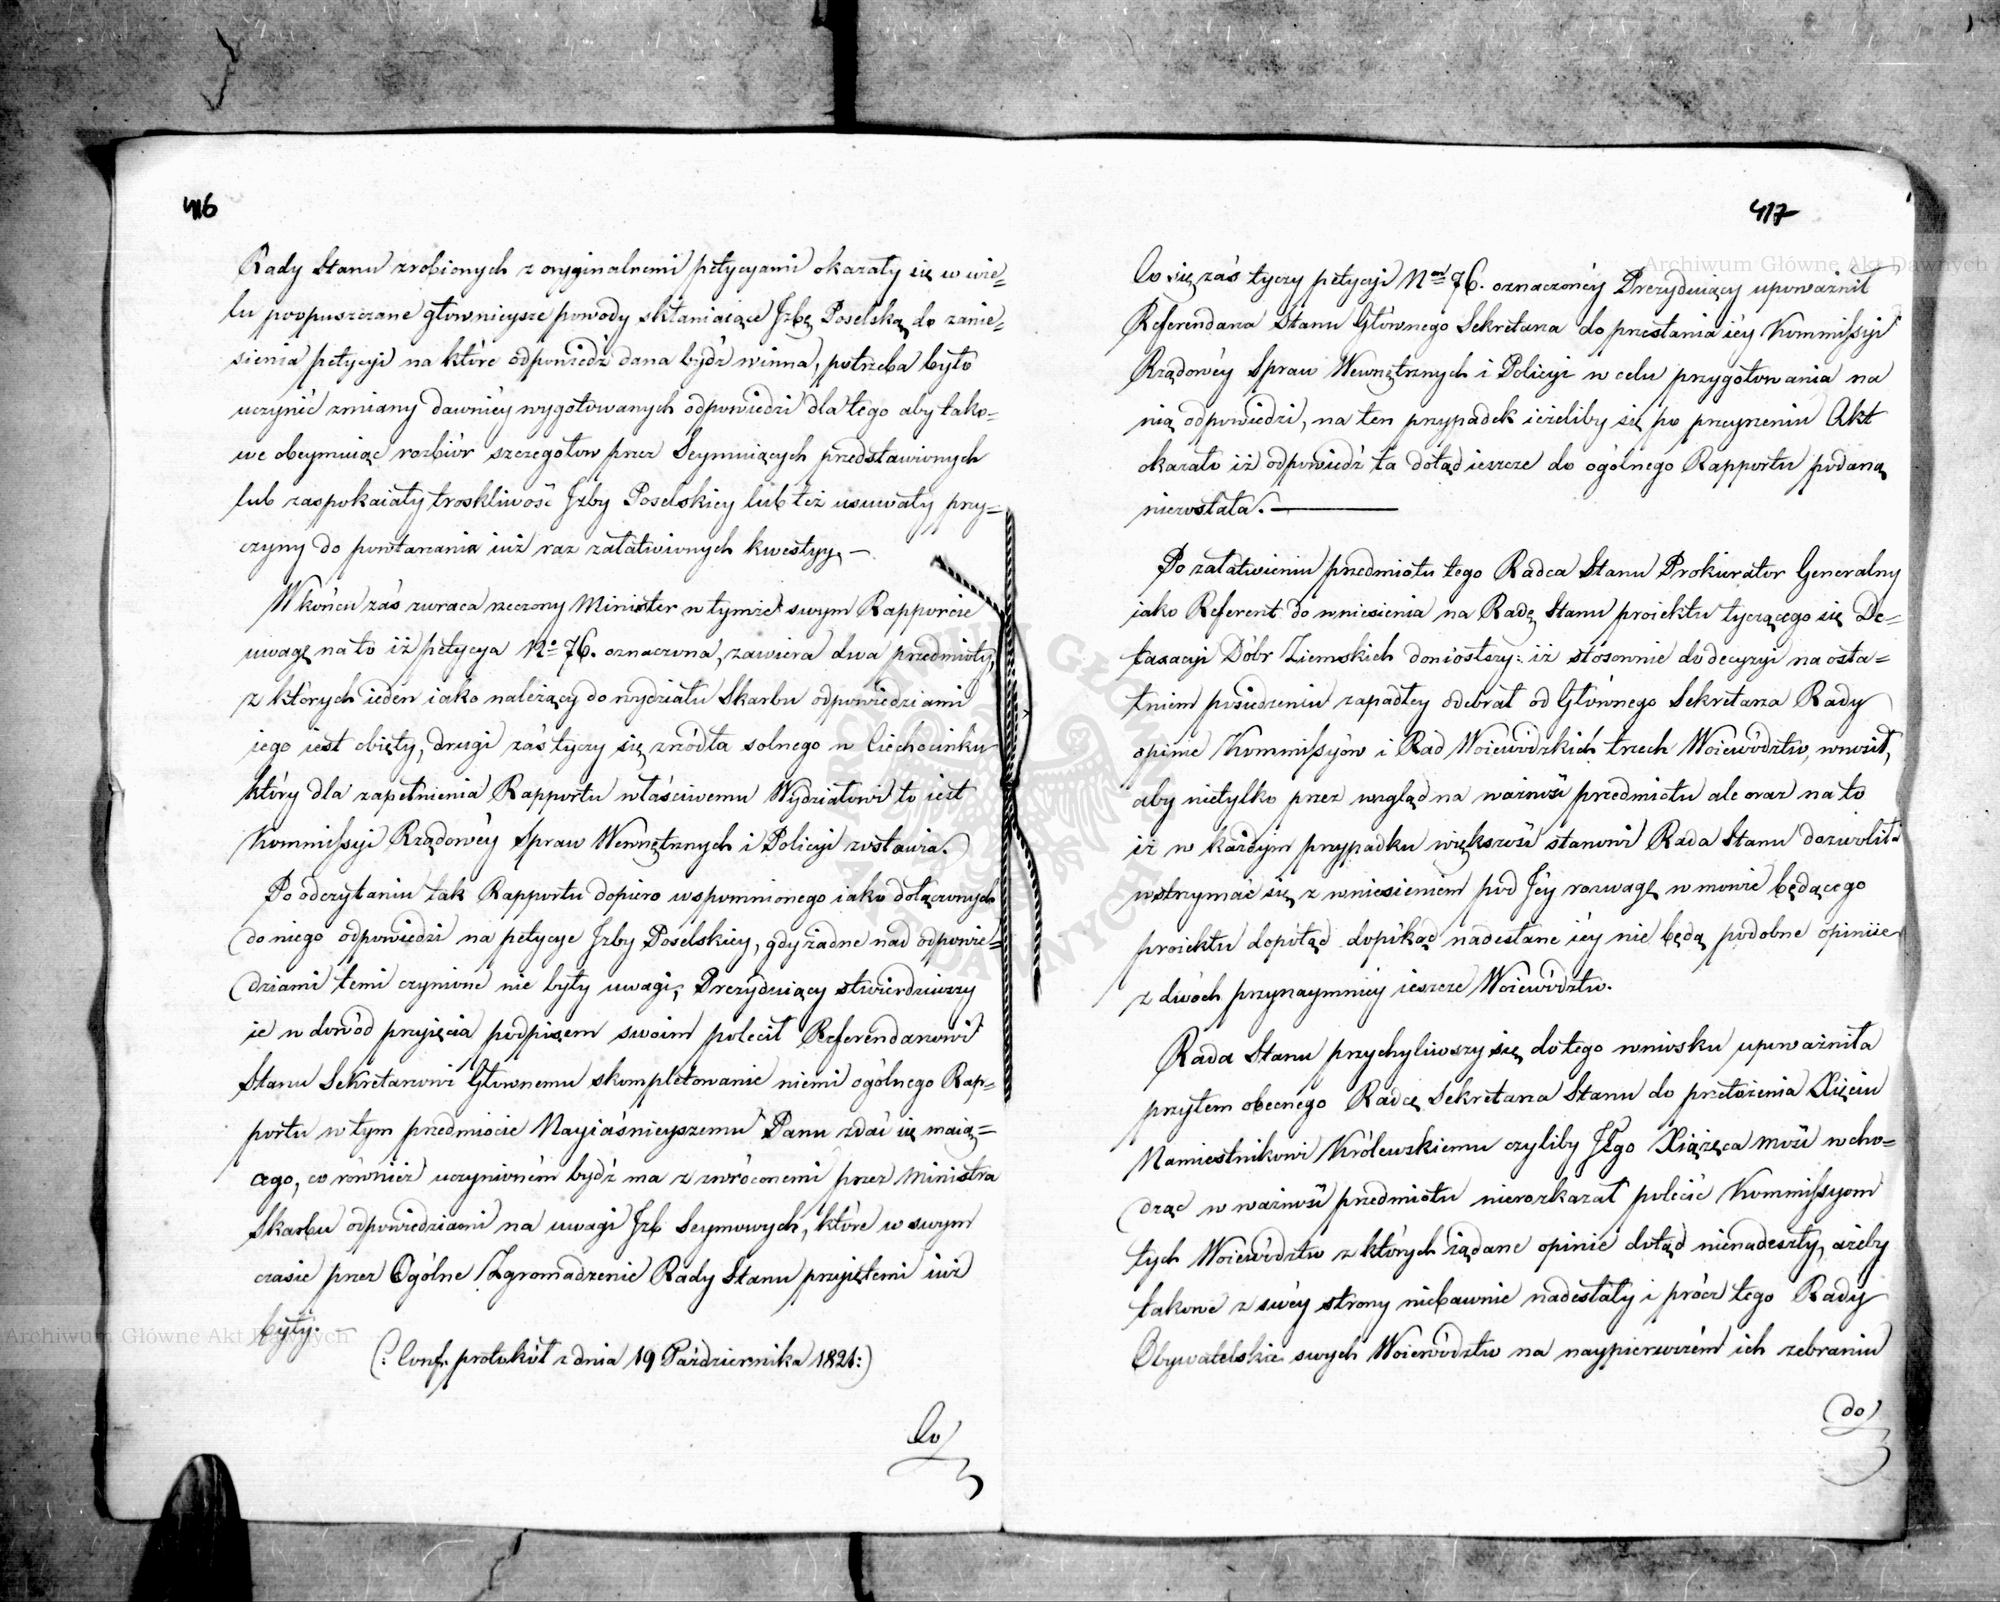 416
Rady Stanu zrobionych z oryginalnemi petycyami okazały się w wie=
lu poopuszczane głownieysze powody skłaniaiące Jzbę Poselską do zanie=
sienia petycyi na które odpowiedź dana bydź winna, potrzeba było
uczynić zmiany dawniéy wygotowanych odpowiedzi dla tego aby tako=
we obeymuiąc rozbiór szczegołow przez Seymuiących przedstawionych
lub zaspokaiały troskliwość Jzby Poselskiey lub też usuwały przy=
czyny do powtarzania iuż raz załatwionych kwestyy. —
W końcu zaś zwraca rzeczony Minister w tymże swym Rapporcie
uwagę na to iż petycya No 76. oznaczona, zawiera dwa przedmioty,
z których ieden iako należący do wydziału Skarbu odpowiedziami
iego iest obięty, drugi zaś tyczy się zrzódła solnego w Ciechocinku
który dla zapełnienia Rapportu właściwemu Wydziałowi to iest
Kommissyi Rządowéy Spraw Wewnętrznych i Policyi zostawia.
Po odczytaniu tak Rapportu dopiero wspomnionego iako dołączonych
do niego odpowiedzi na petycye Jzby Poselskiey, gdy żadne nad odpowie=
dziami temi czynione nie były uwagi, Prezyduiący stwierdziwszy
ie w dowód przyięcia podpisem swoim polecił Referendarzowi
Stanu Sekretarzowi Głownemu skompletowanie niemi ogólnego Rap=
portu w tym przedmiocie Nayiaśnieyszemu Panu zdać się maią=
cego, co również uczynioném bydź ma z zwróconemi przez Ministra
Skarbu odpowiedziami na uwagi Jzb Seymowych, które w swym
czasie przez Ogólne Zgromadzenie Rady Stanu przyiętemi iuż
były.
(: Conf. protokół z dnia 19 Października 1821:)
Co
417
Co się zaś tyczy petycyi Nem 76. oznaczonéy Prezyduiący upoważnił
Referendarza Stanu Głównego Sekretarza do przesłania iéy Kommissyi
Rządowéy Spraw Wewnętrznych i Policyi w celu przygotowania na
nią odpowiedzi, na ten przypadek ieżeliby się po przeyrzeniu Akt
okazało iż odpowiedź ta dotąd ieszcze do ogólnego Rapportu podaną
niezostała. —
Po załatwieniu przedmiotu tego Radca Stanu Prokurator Generalny
iako Referent do wniesienia na Radę Stanu proiektu tyczącego się De=
taxacyi Dóbr Ziemskich doniosłszy: iż stosownie do decyzyi na osta=
tniem posiedzeniu zapadłey odebrał od Głównego Sekretarza Rady
opinie Kommissyów i Rad Woiewódzkich trzech Woiewództw, wnosił,
aby nietylko przez wzgląd na ważność przedmiotu ale oraz na to
iż w każdym przypadku większość stanowi Rada Stanu dozwoliła
wstrzymać się z wniesieniem pod Jéy rozwagę w mowie będącego
proiektu dopótąd dopókąd nadesłane iéy nie będą podobne opiniie
z dwóch przynaymniéy ieszcze Woiewództw.
Rada Stanu przychyliwszy się do tego wniosku upoważniła
przytem obecnego Radcę Sekretarza Stanu do przełożenia Xięciu
Namiestnikowi Królewskiemu czyliby Jego Xiążęca Mość wcho=
dząc w ważność przedmiotu nierozkazał polecić Kommissyom
tych Woiewództw z których żądane opinie dotąd nienadeszły, ażeby
takowe z swéy strony niebawnie nadesłały i prócz tego Rady
Obywatelskie swych Woiewództw na naypierwszém ich zebraniu
do
Archiwum Główne Akt Dawnych
Archiwum Główne Akt Dawnych